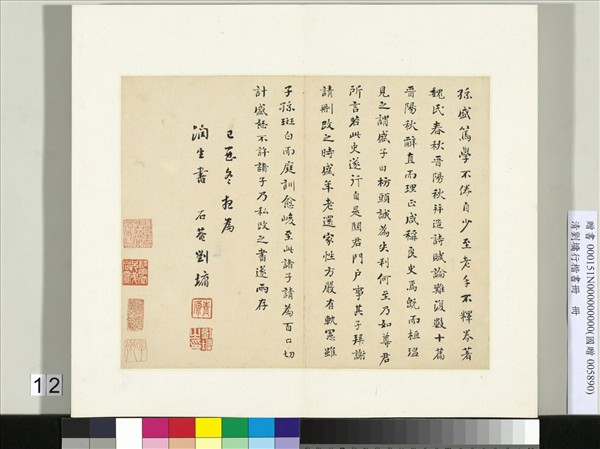 孫盛篤學不倦自少至老手不釋卷著
魏氏春秋晉陽秋并造詩賦論難復數十篇
晉陽秋辭直而理正咸稱良史焉既而桓溫
見之謂盛子曰枋頭誠為失利何至乃如尊君
所言若此史遂行自是關君門戶事其子拜謝
請刪改之時盛年老還家性方嚴有軌憲雖
子孫斑白而庭訓愈峻至此諸子請為百口切
計盛怒不許諸子乃私改之書遂兩存
為
潤生書 石菴劉墉
贈書 000151N000000000(國贈 005890)
清劉墉行楷書冊 冊
12